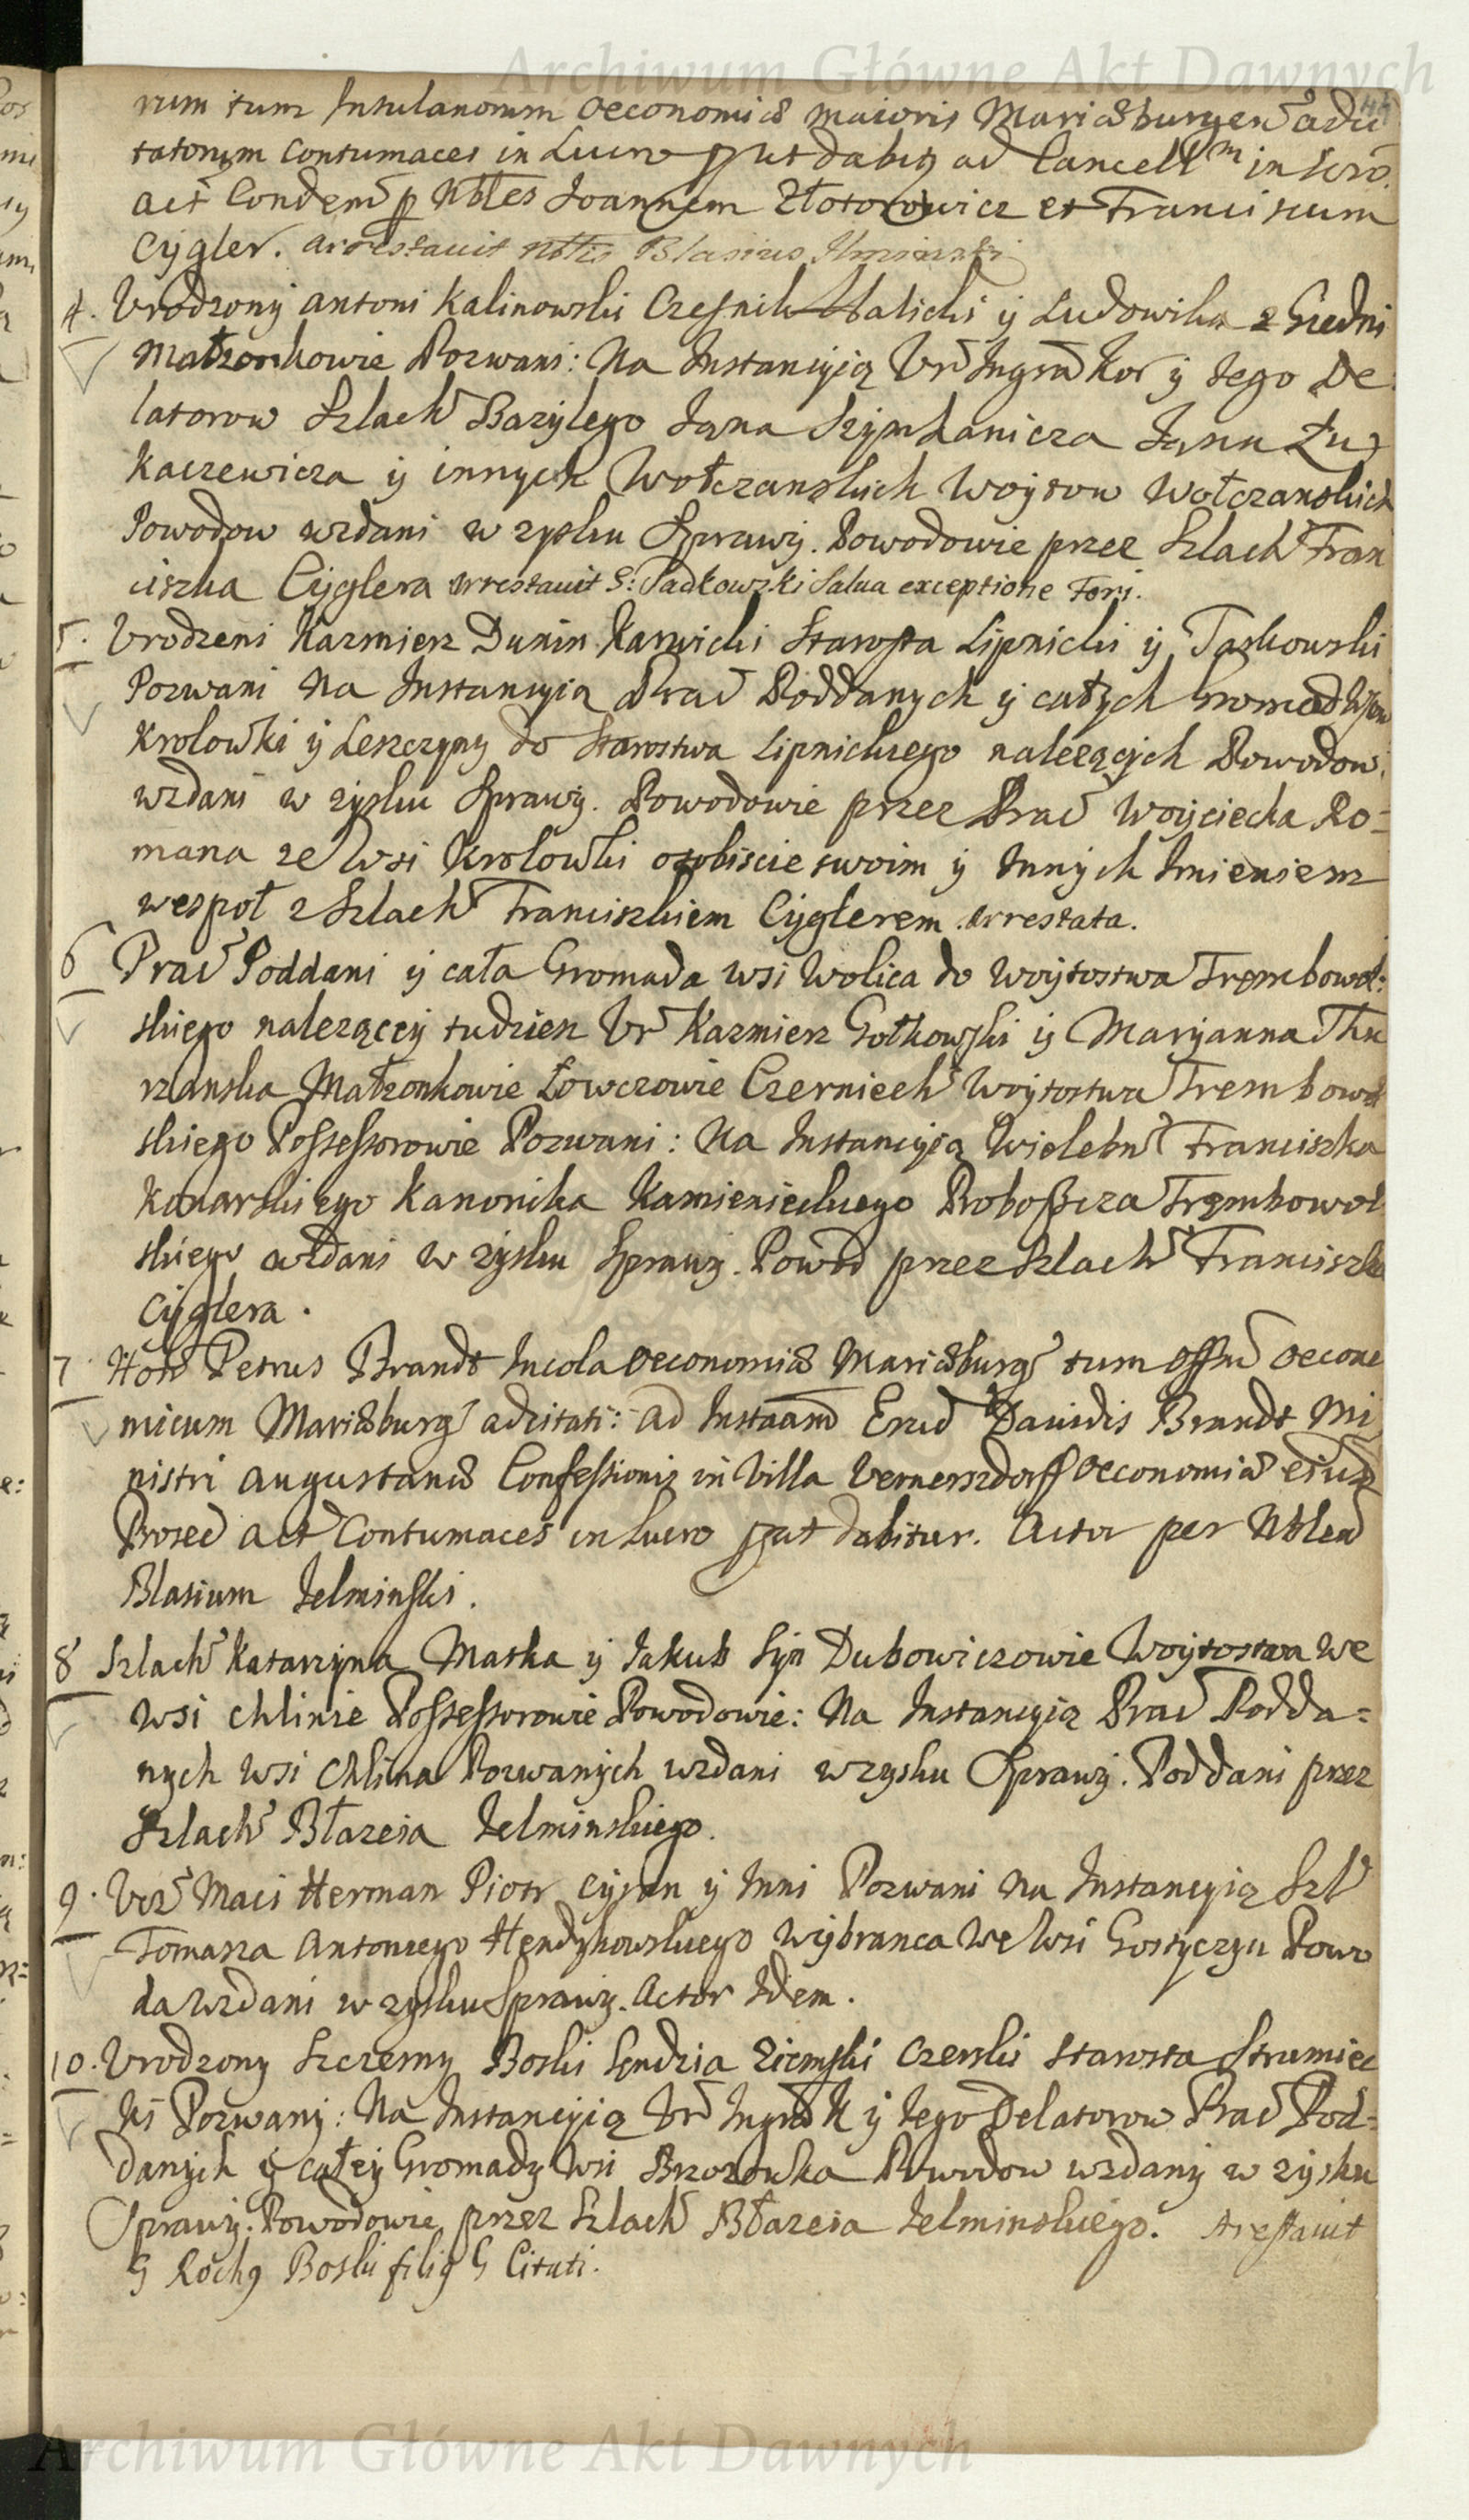 Archiwum Główne Akt Dawnych
rum tum Insulanorum Oeconomiæ maioris Mariæburgen adci
tatorum Contumaces in Lucro put dabitz ad Cancellm in
act Condemn p Nbles Joannem Złotorowicz et Franciscum
Cygler. arrestavit Nblis Blasius
4. Vrodzony Antoni Kalinowski Czesnik Halicki ÿ Ludowika z
Małzonkowie Pozwani: Na Instancÿią Vr Insẗ Kor ÿ Jego De
latorow Szlach Bazÿlego Jana Szÿmhanicza Jana Łu
kaczewicza ÿ innÿch Wołczanskich Woytow Wołczanskich
Powodow wzdani w zysku Sprawÿ. Powodowie przez Szlach Fran
ciszka Cÿglera arrestavit G: Padkowski Salva exceptione Fori.
5. Vrodzeni Kazmierz Dunin Karwicki Starosta Lipnicki ÿ Taskowski
Pozwani Na Instancÿią Prac Poddanych ÿ całÿch Gromad Wsiow
Krolowki ÿ Leszczyny do Starostwa Lipnickiego nalezącÿch Powodow
wzdani w zÿsku Sprawÿ. Powodowie przez Prac Woÿciecha Ro-
mana ze Wsi Krolowki osobiscie swoim ÿ Innÿch Imieniem
wespoł z Szlach Franciszkiem Cÿglerem. arrestata.
6 Prac Poddani ÿ cała Gromada wsi Wolica do Woÿtostwa Trembowol:
skiego nalezącey tudziesz Vr Kazmierz Gołkowski ÿ Marÿanna Thu
rzanska Małzonkowie Łowczowie Czerniech Woÿtostwa Trembowol
skiego Possessorowie Pozwani: Na Instancÿią Wielebn Franciszka
Konarskiego Kanonika Kamienieckiego Proboszcza Trembowol
skiego wzdani w zÿsku Sprawÿ. Powod przez Szlach Franciszka
Cÿglera.
7. Hon Petrus Brandt Incola Oeconomiæ Mariæburg tum Offm Oecono
micum Mariæburg adcitati: ad Instaam Erud Dauidis Brandt Mi
nistri Augustanæ Confessionis in Villa Vernerszdorff Oeconomiæ eiusd
Prosed act Contumaces in Lucro put dabitur. Actor per Nblem
Blasium Jelminski.
8 Szlach Katarzÿna Matka ÿ Jakub Sÿn Dubowiczowie Woÿtostwa we
wsi Chlinie Possessorowie Powodowie: Na Instancÿią Prac Podda=
nÿch wsi Chlina Pozwanÿch wzdani w zysku Sprawÿ. Poddani przez
Szlach Błazeia Jelminskiego.
9. Vcz Maci Herman Piotr Cÿgan ÿ Inni Pozwani Na Instancÿią Szl
Tomasza Antoniego Hendÿkowskiego Wÿbranca We Wsi Gostyczyn Powo
da wzdani w zysku Sprawÿ. Actor Idem.
10. Vrodzony Szczesny Boski Sendzia Ziemski Czerski Starosta Strumiec
ki Pozwanÿ: Na Instancÿią Vr Insẗ K ÿ Jego Delatorow Prac Pod=
danÿch ÿ całeÿ Gromady Wsi Brzozowka Powodow wzdanÿ w zÿsku
Sprawÿ. Powodowie przez Szlach Błazeia Jelminskiego. Arestavit
G Roch9 Boski fili9 G Citati.
Archiwum Główne Akt Dawnych